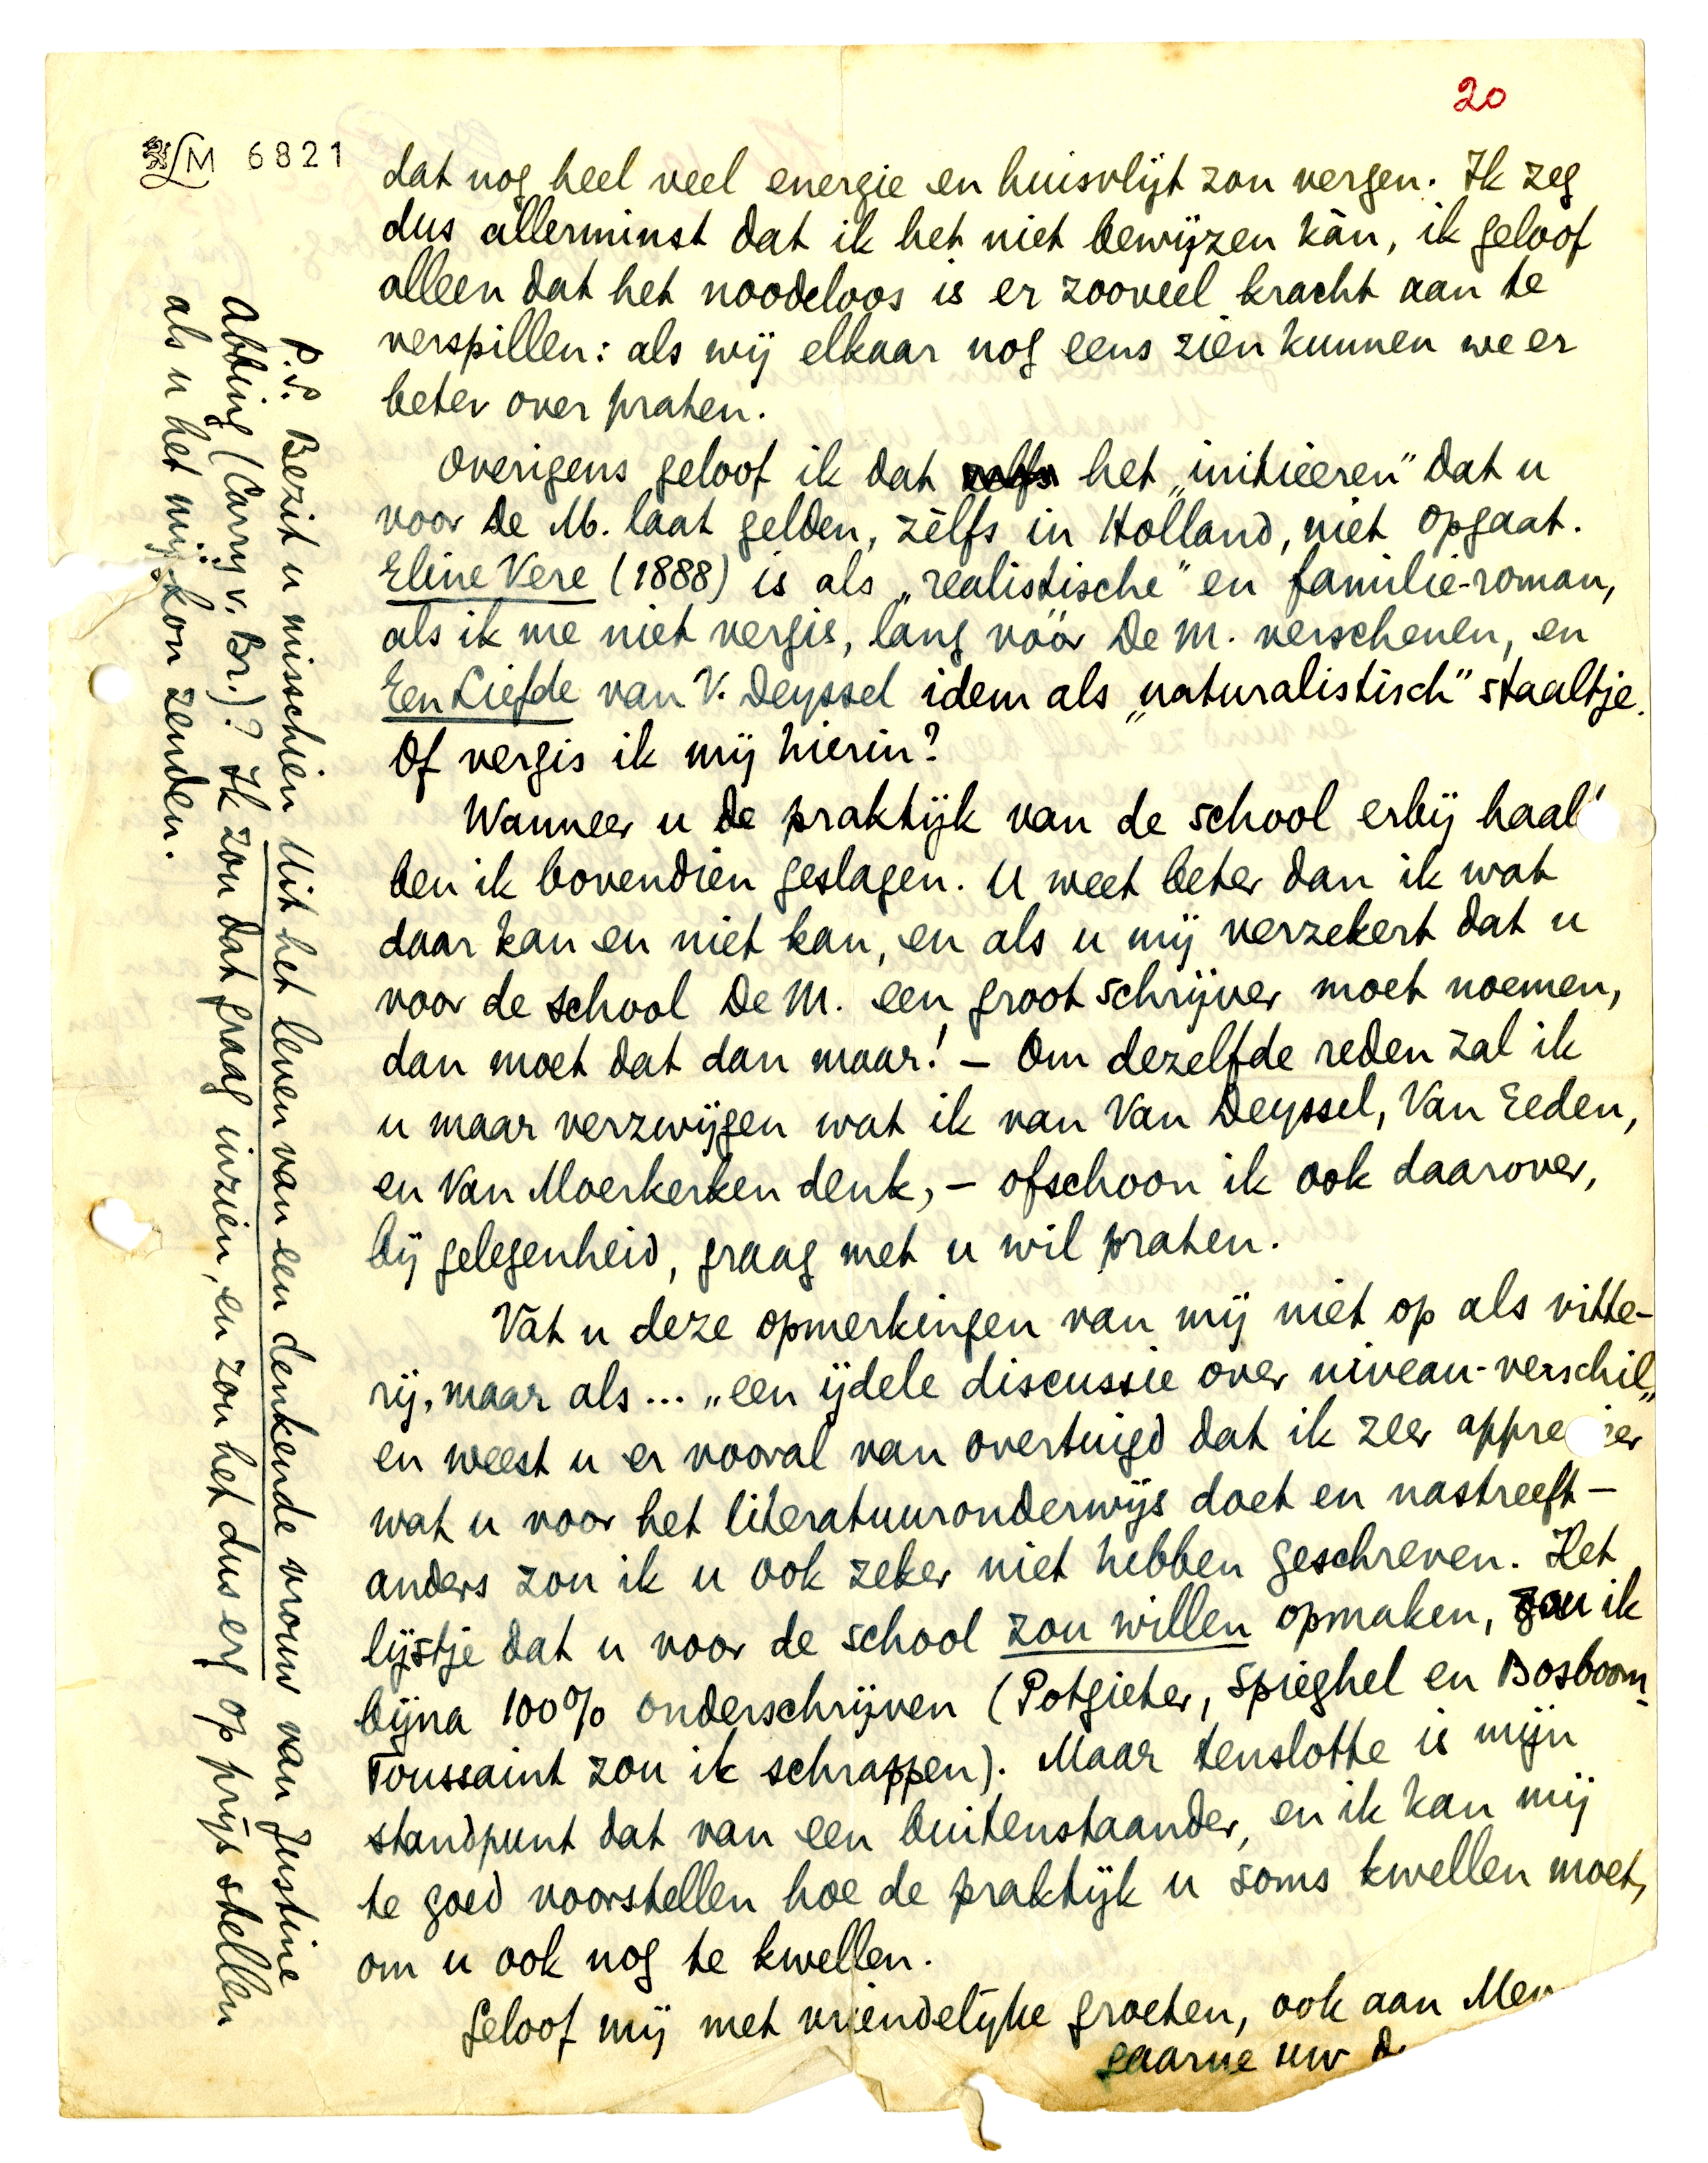 20
LM 6821
dat nog heel veel energie en huisvlijt zou vergen. Ik zeg
dus allerminst dat ik het niet bewijzen kàn, ik geloof
alleen dat het noodeloos is er zooveel kracht aan te
verspillen: als wij elkaar nog eens zien kunnen we er
beter over praten.
Overigens geloof ik dat zelfs het „initieeren" dat u
voor De M. laat gelden, zèlfs in Holland, niet opgaat.
Eline Vere (1888) is als „realistische" en familie-roman,
als ik me niet vergis, lang vóór De M. verschenen, en
Een Liefde van V. Deyssel idem als „naturalistisch" staaltje.
Of vergis ik mij hierin?
Wanneer u de praktijk van de school erbij haalt
ben ik bovendien geslagen. U weet beter dan ik wat
daar kan en niet kan, en als u mij verzekert dat u
voor de school De M. een groot schrijver moet noemen,
dan moet dat dan maar! – Om dezelfde reden zal ik
u maar verzwijgen wat ik van Van Deyssel, Van Eeden,
en Van Moerkerken denk, – ofschoon ik ook daarover,
bij gelegenheid, graag met u wil praten.
Vat u deze opmerkingen van mij niet op als vitte-
rij, maar als... „een ijdele discussie over niveau-verschil„
en weest u er vooral van overtuigd dat ik zeer appre ier
wat u voor het literatuuronderwijs doet en nastreeft –
anders zou ik u ook zeker niet hebben geschreven. Het
lijstje dat u voor de school zou willen opmaken, zou ik
bijna 100% onderschrijven (Potgieter, Spieghel en Bosboom-
Toussaint zou ik schrappen). Maar tenslotte is mijn
standpunt dat van een buitenstaander, en ik kan mij
te goed voorstellen hoe de praktijk u soms kwellen moet,
om u ook nog te kwellen.
Geloof mij met vriendelijke groeten, ook aan Mev
gaarne uw d
P.S. Bezit u misschien Uit het leven van een denkende vrouw van Justine
Abbing (Carry v. Br.)? Ik zou dat graag inzien, en zou het dus erg op prijs stellen
als u het mij kon zenden.